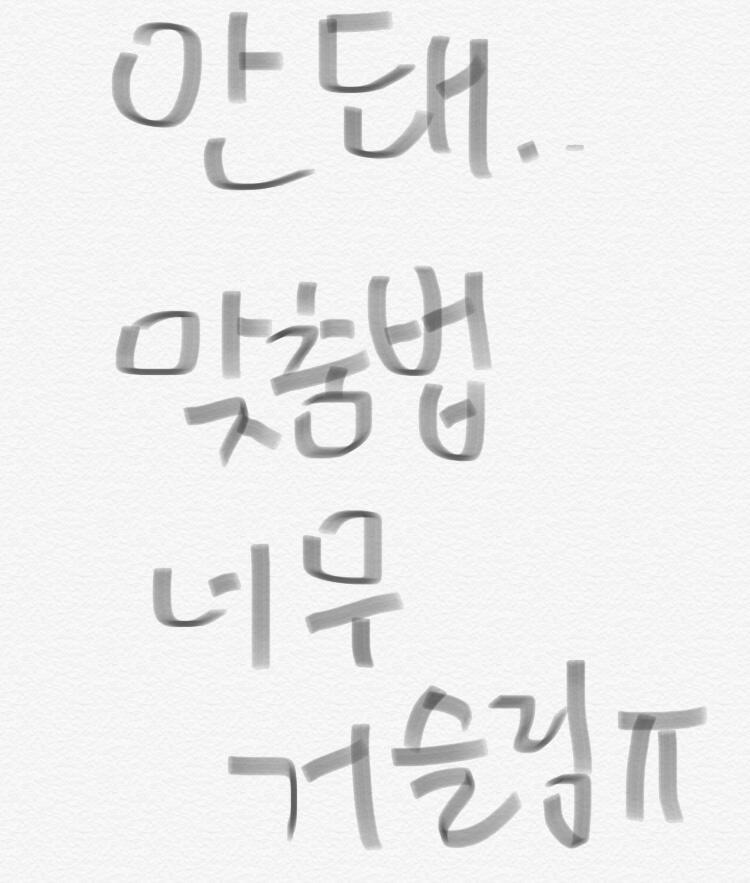 안 돼..
맞춤법
너무
거슬림ㅠ